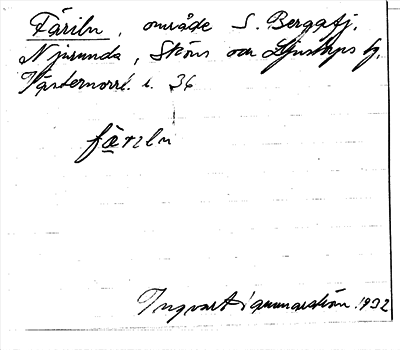 Färiln, område S. Bergafj.
Njurunda, Sköns och Ljustorps tg.
Västernorrl. l. 36
färiln
Ingvart Gunnarsson. 1932